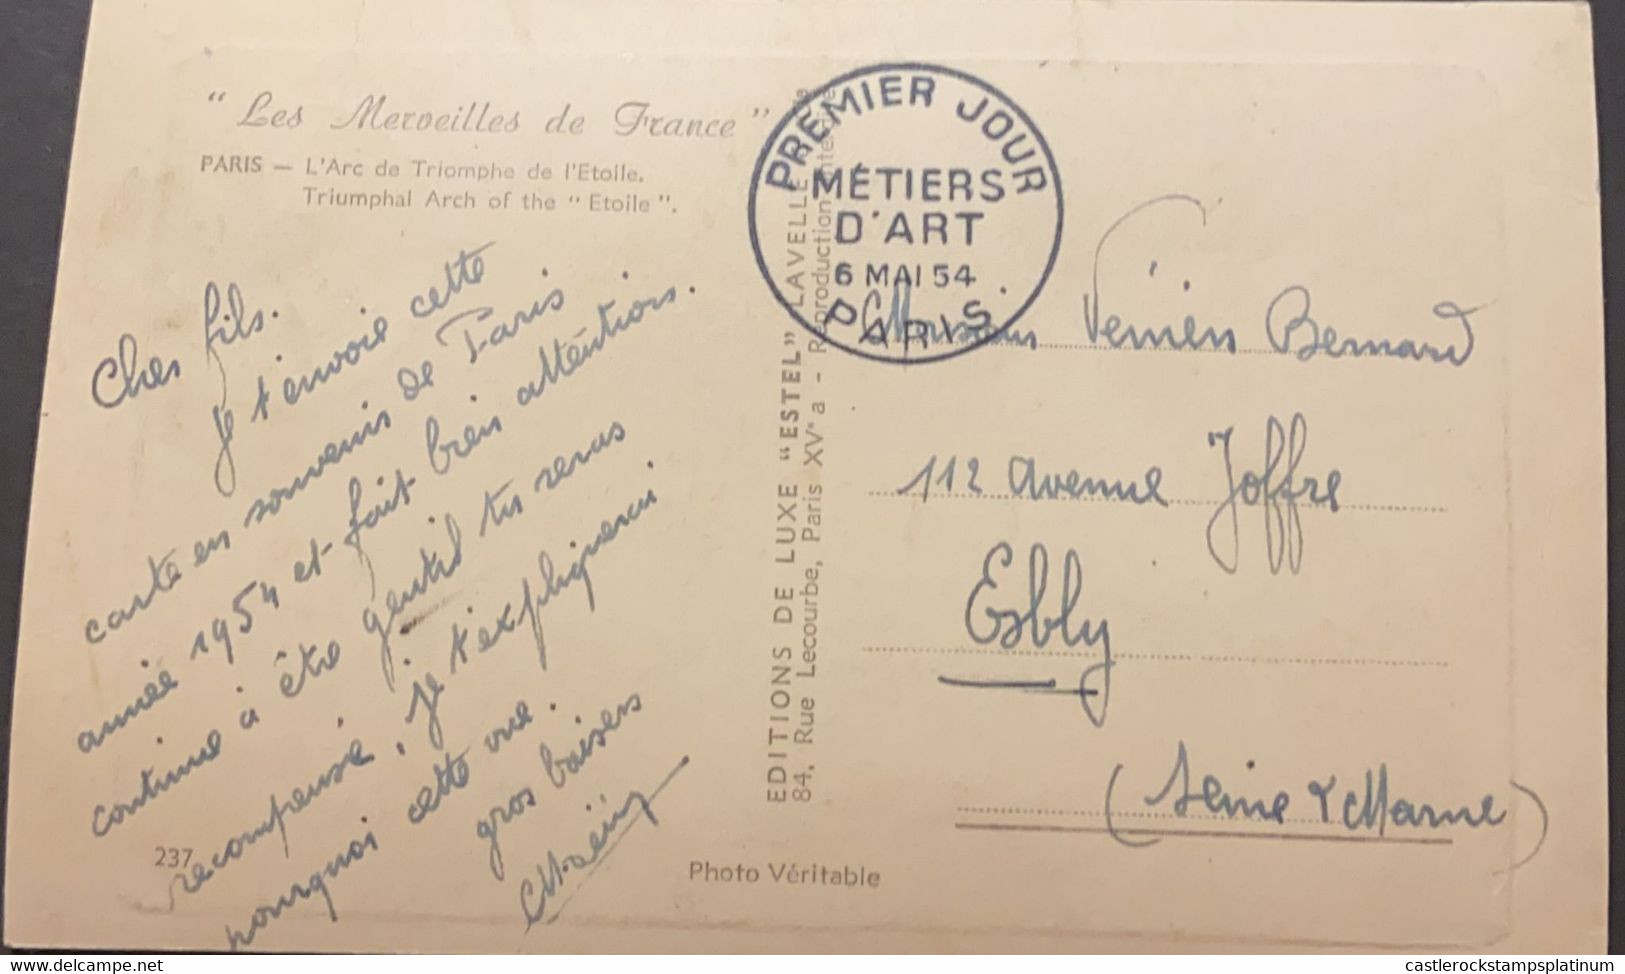 " Les Merveilles de France "
PARIS — L'Arc de Triomphe de l'Etoile.
Triumphal Arch of the " Etoile ".
Cher fils.
Je t'envoie cette
carte en souvenir de Paris
année 1954 et fait bien attention.
continue à être gentil tu seras
recompensé, je t'expliquerai
pourquoi cette vue.
gros baisers
237
Photo Véritable
EDITIONS DE LUXE "ESTEL" LAVELLE
84, Rue Lecourbe, Paris XVe a - Reproduction interdite
PREMIER JOUR
MÉTIERS
D'ART
6 MAI 54
PARIS
Monsieur Bernard
112 avenue Joffre
Esbly
(Seine & Marne)
www.delcampe.net
castlerockstampsplatinum